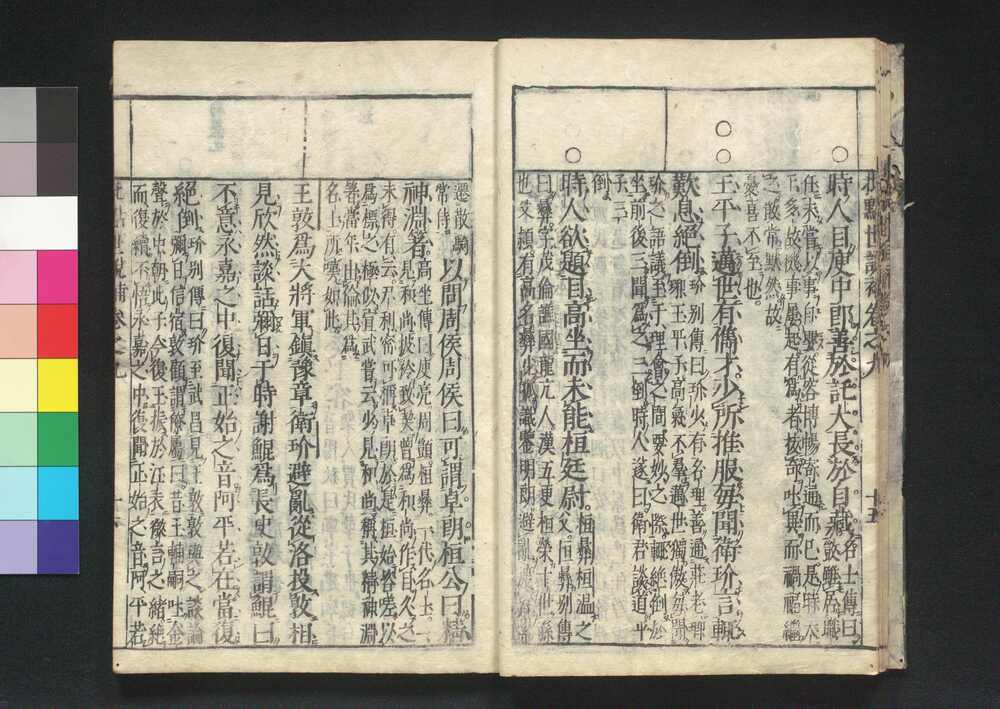 時人目庾中郎善於託大長於自藏名士傳曰敳雖居職
任未嘗以事自嬰從容博暢寄通而已是時天
下多故機事屢起有爲者拔奇吐異而禍福繼
之敳常默然故
憂喜不至也
王平子邁世有儁才少所推服每聞衛玠言輒
歎息絕倒玠別傳曰玠少有名理善通莊老琅
琊王平子高氣不羣邁世獨傲每聞
玠之語議至于理會之間要妙之際輒絕倒於
坐前後三聞爲之三倒時人遂曰衛君談道平
子三
倒
時人欲題目高坐而未能桓廷尉桓彝別傳
曰彝字茂倫譙國龍亢人漢五更桓榮十世孫
也父穎有高名彝少孤識鑒明朗避亂
遷散騎
常侍以問周侯周侯曰可謂卓朗桓公曰精
神淵著高坐傳曰庾亮周顗桓彝一代名士一
見和尚披衿致契曾爲和尚作目久之
未得有云尸利密可稱卓朗於是桓始咨嗟以
爲標之極似宣武嘗云少見和尚稱其精神淵
箸當年出倫其爲
名士所歎如此
王敦爲大將軍鎮豫章衛玠避亂從洛投敦相
見欣然談話彌日于時謝鯤爲長史敦謂鯤曰
不意永嘉之中復聞正始之音阿平若在當復
絕倒玠別傳曰玠至武昌見王敦敦與之談論
彌日信宿敦顧謂僚屬曰昔王輔嗣吐金
聲於中朝此子今復玉振於江表微言之緒絕
而復續不悟永嘉之中復聞正始之音阿平若